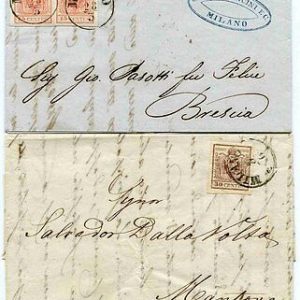 MILANO
Sig Gio. Pasotti fu Felice
Brescia
30 CENT
MILANO
Salvador Dalla Volta
Mantova